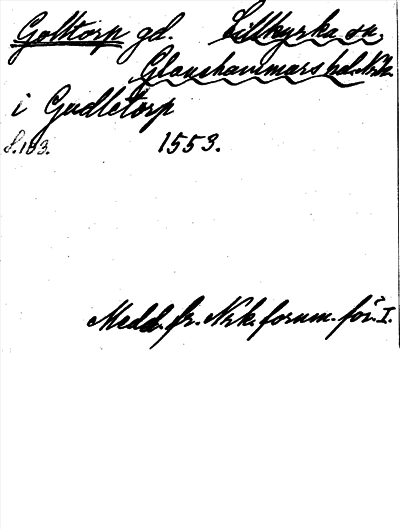 Golltorp gd. Lillkyrka sn,
Glanshammars hd. Nrk.
i Gudletorp
s. 183. 1553.
Medd. fr. Nrk. forum. för. I.